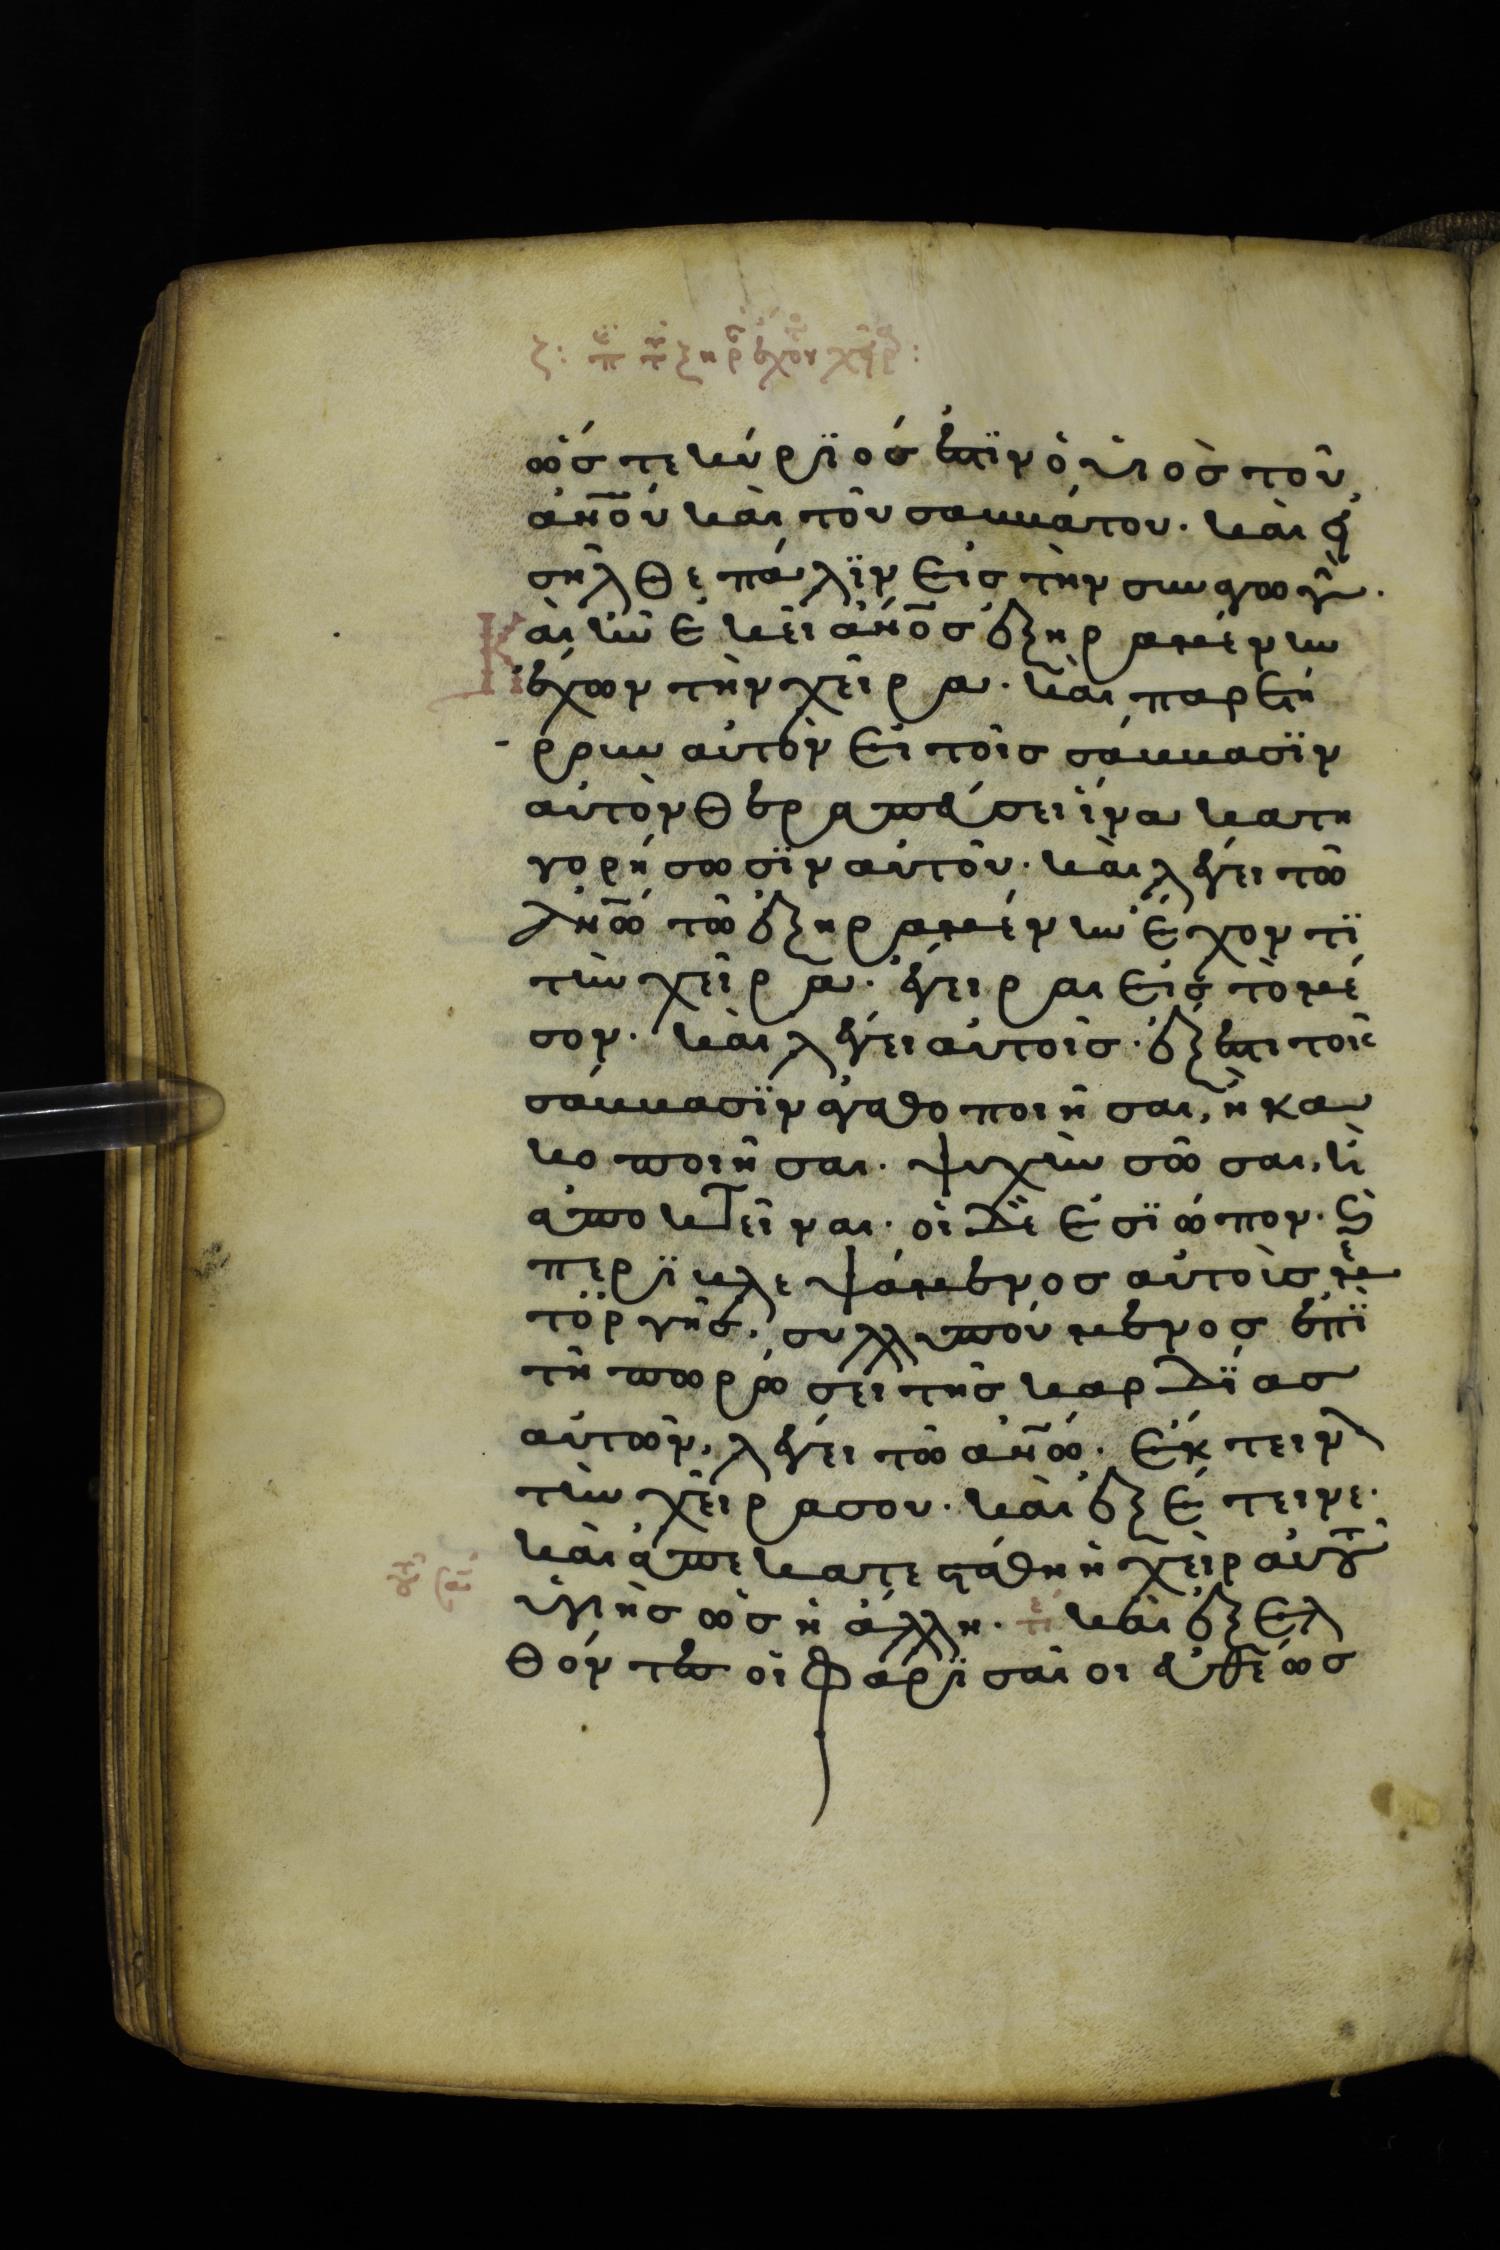 ζ: π τ ξηρ ἔχοντ χεῖρ:
ὥστε κύριός ἐστϊν ὁ υἱὸς τοῦ
ἀν̅ου καὶ τοῦ σαββάτου. καὶ εἰ
σῆλθε πάλϊν εἰς τὴν συναγωγήν.
Καὶ ἦν ἐκεῖ ἄν̅ος ἐξηραμμένην
ἔχων τὴν χεῖρα. καὶ παρετή
ρουν αὐτὸν εἰ τοῖς σάββασϊν
αὐτὸν θεραπεύσει ἵνα κατη
γορήσωσϊν αὐτοῦ. καὶ λέγει τῶ
ἀν̅ω τῶ ἐξηραμμένην ἔχοντϊ
τὴν χεῖρα. ἔγειραι εἰς τὸ μέ
σον. καὶ λέγει αὐτοῖς. ἔξεστι τοῖς
σάββασϊν ἀγαθοποιῆσαι, ἢ κα
κοποιῆσαι. ψυχὴν σῶσαι, ἢ
ἀποκτεῖναι. οἱ δὲ ἐσϊώπον. Ϗ
περϊβλεψάμενος αὐτοὺς με
τ ὀργῆς, συλλυπούμενος ἐπῒ
τῆ πωρώσει τῆς καρδΐας
αὐτῶν, λέγει τῶ ἀν̅ω. ἔκτεινον
τὴν χεῖρα σου. καὶ ἐξέτεινε.
καὶ ἀπεκατεστάθη ἡ χεὶρ αὐτοῦ
ὑγιὴς ὡς ἡ ἄλλη. τε καὶ ἐξελ
θόντες οἱ Φαρϊσαῖοι εὐθέως